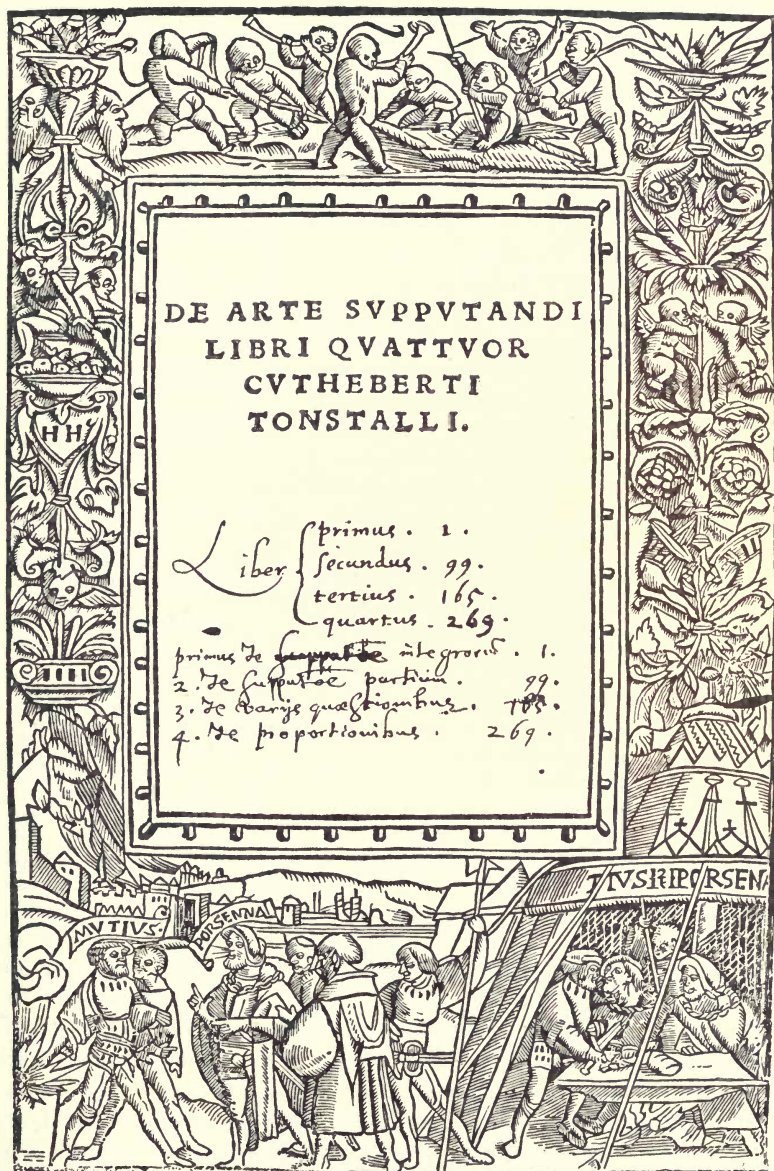 DE ARTE SVPPVTANDI
LIBRI QVATTVOR
CVTHEBERTI
TONSTALLI.
HH
Liber
primus . 1 .
secundus . 99 .
tertius . 165 .
quartus . 269 .
primus de integrorū . 1.
2. de supputatōe partium . 99 .
3. de varijs quæstionibus .
4. de proportionibus . 269 .
MVTIVS
PORSENNA
PORSEN